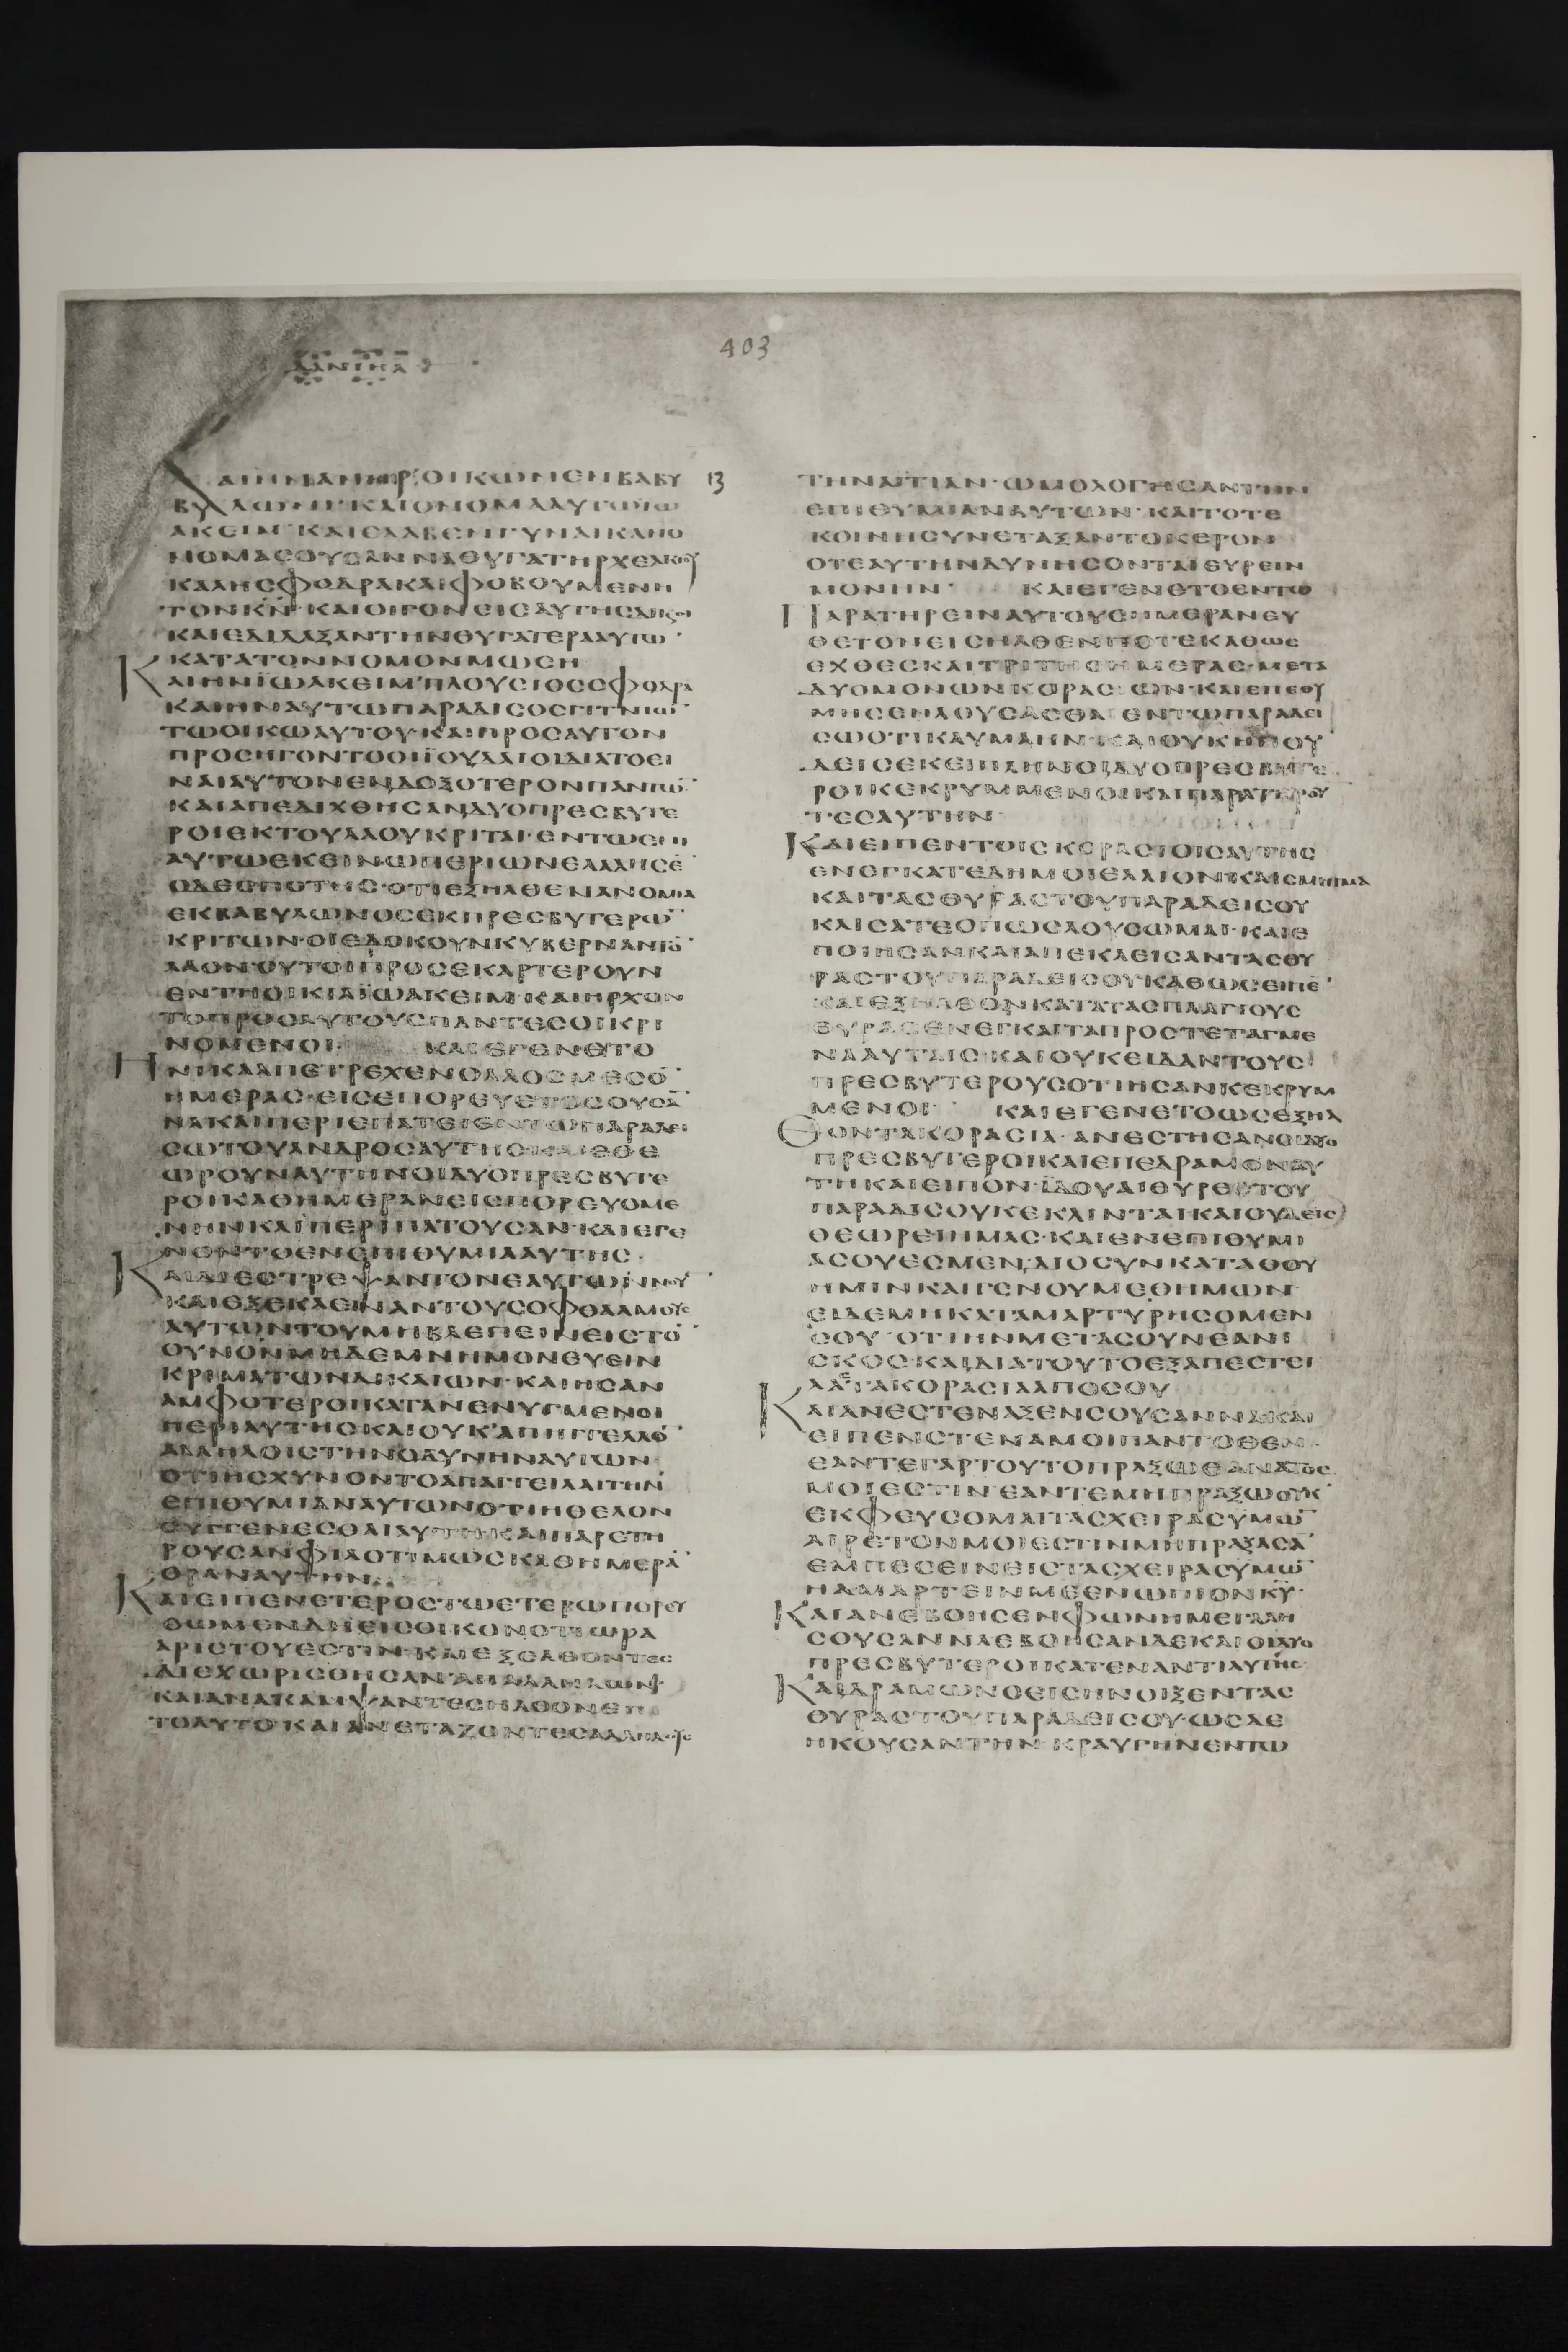 ΔΑΝΙΗΛ
403
ΚΑΙΗΝΑΝΗΡΟΙΚΩΝΕΝΒΑΒΥ 13
ΛΩΝΙ·ΚΑΙΟΝΟΜΑΑΥΤΩΪΩ
ΑΚΕΙΜ·ΚΑΙΕΛΑΒΕΝΓΥΝΑΙΚΑΗΟ
ΝΟΜΑΣΟΥΣΑΝΝΑΘΥΓΑΤΗΡΧΕΛΚΙΟΥ
ΚΑΛΗΣΦΟΔΡΑΚΑΙΦΟΒΟΥΜΕΝΗ
ΤΟΝΚΝ·ΚΑΙΟΙΓΟΝΕΙΣΑΥΤΗΣΔΙΚΑΙΟΙ
ΚΑΙΕΔΙΔΑΞΑΝΤΗΝΘΥΓΑΤΕΡΑΑΥΤΩ
ΚΑΤΑΤΟΝΝΟΜΟΝΜΩΣΗ
ΚΑΙΗΝΪΩΑΚΕΙΜΠΛΟΥΣΙΟΣΣΦΟΔΡΑ
ΚΑΙΗΝΑΥΤΩΠΑΡΑΔΙΣΟΣΓΙΤΝΙΩ
ΤΩΟΙΚΩΑΥΤΟΥ·ΚΑΙΠΡΟΣΑΥΤΟΝ
ΠΡΟΣΗΓΟΝΤΟΟΙΪΟΥΔΑΙΟΙΔΙΑΤΟΕΙ
ΝΑΙΑΥΤΟΝΕΝΔΟΞΟΤΕΡΟΝΠΑΝΤΩ
ΚΑΙΑΠΕΔΙΧΘΗΣΑΝΔΥΟΠΡΕΣΒΥΤΕ
ΡΟΙΕΚΤΟΥΛΑΟΥΚΡΙΤΑΙ·ΕΝΤΩΕΝΙ
ΑΥΤΩΕΚΕΙΝΩΠΕΡΙΩΝΕΛΑΛΗΣΕ
ΟΔΕΣΠΟΤΗΣ·ΟΤΙΕΞΗΛΘΕΝΑΝΟΜΙΑ
ΕΚΒΑΒΥΛΩΝΟΣΕΚΠΡΕΣΒΥΤΕΡΩ
ΚΡΙΤΩΝ·ΟΙΕΔΟΚΟΥΝΚΥΒΕΡΝΑΝΤΟ
ΛΑΟΝ·ΟΥΤΟΙΠΡΟΣΕΚΑΡΤΕΡΟΥΝ
ΕΝΤΗΟΙΚΙΑΪΩΑΚΕΙΜ·ΚΑΙΗΡΧΟΝ
ΤΟΠΡΟΣΑΥΤΟΥΣΠΑΝΤΕΣΟΙΚΡΙ
ΝΟΜΕΝΟΙ· ΚΑΙΕΓΕΝΕΤΟ
ΗΝΙΚΑΑΠΕΤΡΕΧΕΝΟΛΑΟΣΜΕΣΟ
ΗΜΕΡΑΣ·ΕΙΣΕΠΟΡΕΥΕΤΟΣΟΥΣΑ
ΝΑΚΑΙΠΕΡΙΕΠΑΤΕΙΕΝΤΩΠΑΡΑΔΕΙ
ΣΩΤΟΥΑΝΔΡΟΣΑΥΤΗΣΚΑΙΕΘΕ
ΩΡΟΥΝΑΥΤΗΝΟΙΔΥΟΠΡΕΣΒΥΤΕ
ΡΟΙΚΑΘΗΜΕΡΑΝΕΙΣΠΟΡΕΥΟΜΕ
ΝΗΝΚΑΙΠΕΡΙΠΑΤΟΥΣΑΝ·ΚΑΙΕΓΕ
ΝΟΝΤΟΕΝΕΠΙΘΥΜΙΑΑΥΤΗΣ·
ΚΑΙΔΙΕΣΤΡΕΨΑΝΤΟΝΕΑΥΤΩΝΝΟΥ
ΚΑΙΕΞΕΚΛΕΙΝΑΝΤΟΥΣΟΦΘΑΛΜΟΥΣ
ΑΥΤΩΝΤΟΥΜΗΒΛΕΠΕΙΝΕΙΣΤΟ
ΟΥΝΟΝΜΗΔΕΜΝΗΜΟΝΕΥΕΙΝ
ΚΡΙΜΑΤΩΝΔΙΚΑΙΩΝ·ΚΑΙΗΣΑΝ
ΑΜΦΟΤΕΡΟΙΚΑΤΑΝΕΝΥΓΜΕΝΟΙ
ΠΕΡΙΑΥΤΗΣΚΑΙΟΥΚΑΠΗΓΓΕΛΛΟ
ΑΛΛΗΛΟΙΣΤΗΝΟΔΥΝΗΝΑΥΤΩΝ·
ΟΤΙΗΣΧΥΝΟΝΤΟΑΠΑΓΓΕΙΛΑΙΤΗΝ
ΕΠΙΘΥΜΙΑΝΑΥΤΩΝΟΤΙΗΘΕΛΟΝ
ΣΥΓΓΕΝΕΣΘΑΙΑΥΤΗΚΑΙΠΑΡΕΤΗ
ΡΟΥΣΑΝΦΙΛΟΤΙΜΩΣΚΑΘΗΜΕΡΑ
ΟΡΑΝΑΥΤΗΝ·
ΚΑΙΕΙΠΕΝΕΤΕΡΟΣΤΩΕΤΕΡΩΠΟΡΕΥ
ΘΩΜΕΝΔΗΕΙΣΟΙΚΟΝΟΤΙΩΡΑ
ΑΡΙΣΤΟΥΕΣΤΙΝ·ΚΑΙΕΞΕΛΘΟΝΤΕΣ
ΔΙΕΧΩΡΙΣΘΗΣΑΝΑΠΑΛΛΗΛΩΝ·
ΚΑΙΑΝΑΚΑΜΨΑΝΤΕΣΗΛΘΟΝΕΠΙ
ΤΟΑΥΤΟΚΑΙΑΝΕΤΑΖΟΝΤΕΣ
ΤΗΝΑΙΤΙΑΝ·ΩΜΟΛΟΓΗΣΑΝΤΗΝ
ΕΠΙΘΥΜΙΑΝΑΥΤΩΝ·ΚΑΙΤΟΤΕ
ΚΟΙΝΗΣΥΝΕΤΑΞΑΝΤΟΚΕΡΟΝ
ΟΤΕΑΥΤΗΝΔΥΝΗΣΟΝΤΑΙΕΥΡΕΙΝ
ΜΟΝΗΝ· ΚΑΙΕΓΕΝΕΤΟΕΝΤΩ
ΠΑΡΑΤΗΡΕΙΝΑΥΤΟΥΣΗΜΕΡΑΝΕΥ
ΘΕΤΟΝΕΙΣΗΛΘΕΝΠΟΤΕΚΑΘΩΣ
ΕΧΘΕΣΚΑΙΤΡΙΤΗΣΗΜΕΡΑΣ·ΜΕΤΑ
ΔΥΟΜΟΝΩΝΚΟΡΑΣΙΩΝ·ΚΑΙΕΠΕΘΥ
ΜΗΣΕΝΛΟΥΣΑΣΘΑΙΕΝΤΩΠΑΡΑΔΕΙ
ΣΩΟΤΙΚΑΥΜΑΗΝ·ΚΑΙΟΥΚΗΝΟΥ
ΔΕΙΣΕΚΕΙΠΛΗΝΟΙΔΥΟΠΡΕΣΒΥΤΕ
ΡΟΙΚΕΚΡΥΜΜΕΝΟΙΚΑΙΠΑΡΑΤΗΡΟΥ
ΤΕΣΑΥΤΗΝ·
ΚΑΙΕΙΠΕΝΤΟΙΣΚΟΡΑΣΙΟΙΣΑΥΤΗΣ
ΕΝΕΓΚΑΤΕΔΗΜΟΙΕΛΑΙΟΝΚΑΙΣΜΗΓΜΑ
ΚΑΙΤΑΣΘΥΡΑΣΤΟΥΠΑΡΑΔΕΙΣΟΥ
ΚΛΙΣΑΤΕΟΠΩΣΛΟΥΣΩΜΑΙ·ΚΑΙΕ
ΠΟΙΗΣΑΝΚΑΙΑΠΕΚΛΕΙΣΑΝΤΑΣΘΥ
ΡΑΣΤΟΥΠΑΡΑΔΕΙΣΟΥΚΑΘΩΣΕΙΠΕ
ΚΑΙΕΞΗΛΘΟΝΚΑΤΑΤΑΣΠΛΑΓΙΟΥΣ
ΘΥΡΑΣΕΝΕΓΚΑΙΤΑΠΡΟΣΤΕΤΑΓΜΕ
ΝΑΑΥΤΑΙΣ·ΚΑΙΟΥΚΕΙΔΑΝΤΟΥΣ
ΠΡΕΣΒΥΤΕΡΟΥΣΟΤΙΗΣΑΝΚΕΚΡΥΜ
ΜΕΝΟΙ· ΚΑΙΕΓΕΝΕΤΟΩΣΕΞΗΛ
ΘΟΝΤΑΚΟΡΑΣΙΑ·ΑΝΕΣΤΗΣΑΝΟΙΔΥΟ
ΠΡΕΣΒΥΤΕΡΟΙΚΑΙΕΠΕΔΡΑΜΟΝΑΥ
ΤΗΚΑΙΕΙΠΟΝ·ΪΔΟΥΑΙΘΥΡΕΣΤΟΥ
ΠΑΡΑΔΙΣΟΥΚΕΚΛΙΝΤΑΙΚΑΙΟΥΔΕΙΣ
ΘΕΩΡΕΙΗΜΑΣ·ΚΑΙΕΝΕΠΙΘΥΜΙ
ΑΣΟΥΕΣΜΕΝ,ΔΙΟΣΥΝΚΑΤΑΘΟΥ
ΗΜΙΝΚΑΙΓΕΝΟΥΜΕΘΗΜΩΝ·
ΕΙΔΕΜΗΚΑΤΑΜΑΡΤΥΡΗΣΟΜΕΝ
ΣΟΥ·ΟΤΙΗΝΜΕΤΑΣΟΥΝΕΑΝΙ
ΣΚΟΣ·ΚΑΙΔΙΑΤΟΥΤΟΕΞΑΠΕΣΤΕΙ
ΛΑΣΤΑΚΟΡΑΣΙΑΑΠΟΣΟΥ
ΚΑΙΑΝΕΣΤΕΝΑΞΕΝΣΟΥΣΑΝΝΑΚΑΙ
ΕΙΠΕΝΣΤΕΝΑΜΟΙΠΑΝΤΟΘΕΝ·
ΕΑΝΤΕΓΑΡΤΟΥΤΟΠΡΑΞΩΘΑΝΑΤΟΣ
ΜΟΙΕΣΤΙΝ·ΕΑΝΤΕΜΗΠΡΑΞΩΟΥΚ
ΕΚΦΕΥΞΟΜΑΙΤΑΣΧΕΙΡΑΣΥΜΩ
ΑΙΡΕΤΟΝΜΟΙΕΣΤΙΝΜΗΠΡΑΞΑΣΑ
ΕΜΠΕΣΕΙΝΕΙΣΤΑΣΧΕΙΡΑΣΥΜΩ
ΗΑΜΑΡΤΕΙΝΜΕΕΝΩΠΙΟΝΚΥ·
ΚΑΙΑΝΕΒΟΗΣΕΝΦΩΝΗΜΕΓΑΛΗ
ΣΟΥΣΑΝΝΑΕΒΟΗΣΑΝΔΕΚΑΙΟΙΔΥΟ
ΠΡΕΣΒΥΤΕΡΟΙΚΑΤΕΝΑΝΤΙΑΥΤΗΣ
ΚΑΙΔΡΑΜΩΝΟΕΙΣΗΝΟΙΞΕΝΤΑΣ
ΘΥΡΑΣΤΟΥΠΑΡΑΔΕΙΣΟΥ·ΩΣΔΕ
ΗΚΟΥΣΑΝΤΗΝΚΡΑΥΓΗΝΕΝΤΩ